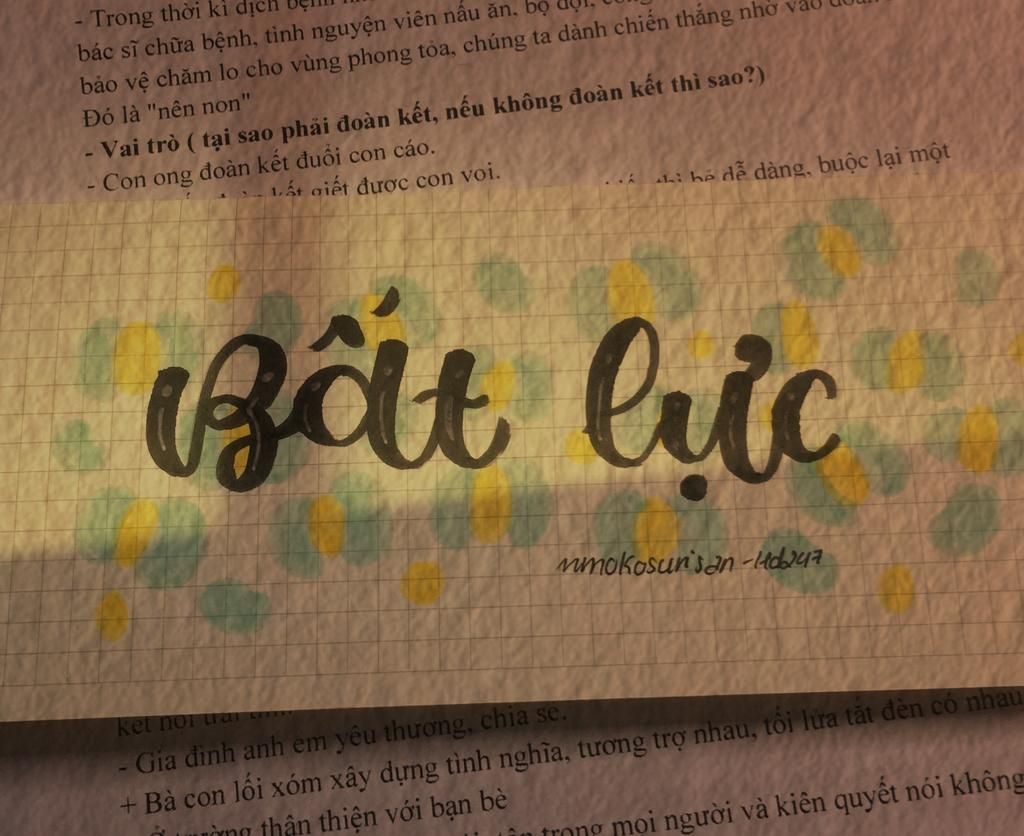 - Trong thời kì dịch bệnh
bác sĩ chữa bệnh, tình nguyện viên nấu ăn, bộ đội,
bảo vệ chăm lo cho vùng phong tỏa, chúng ta dành chiến thắng nhờ vào
Đó là "nên non"
- Vai trò ( tại sao phải đoàn kết, nếu không đoàn kết thì sao?)
- Con ong đoàn kết đuổi con cáo.
kết giết được con voi. thì bẻ dễ dàng, buộc lại một
Bất lực
mmokosurisan - 4d247
kết nối trái tim.
- Gia đình anh em yêu thương, chia sẻ.
+ Bà con lối xóm xây dựng tình nghĩa, tương trợ nhau, tối lửa tắt đèn có nhau
thân thiện với bạn bè
trong mọi người và kiên quyết nói không